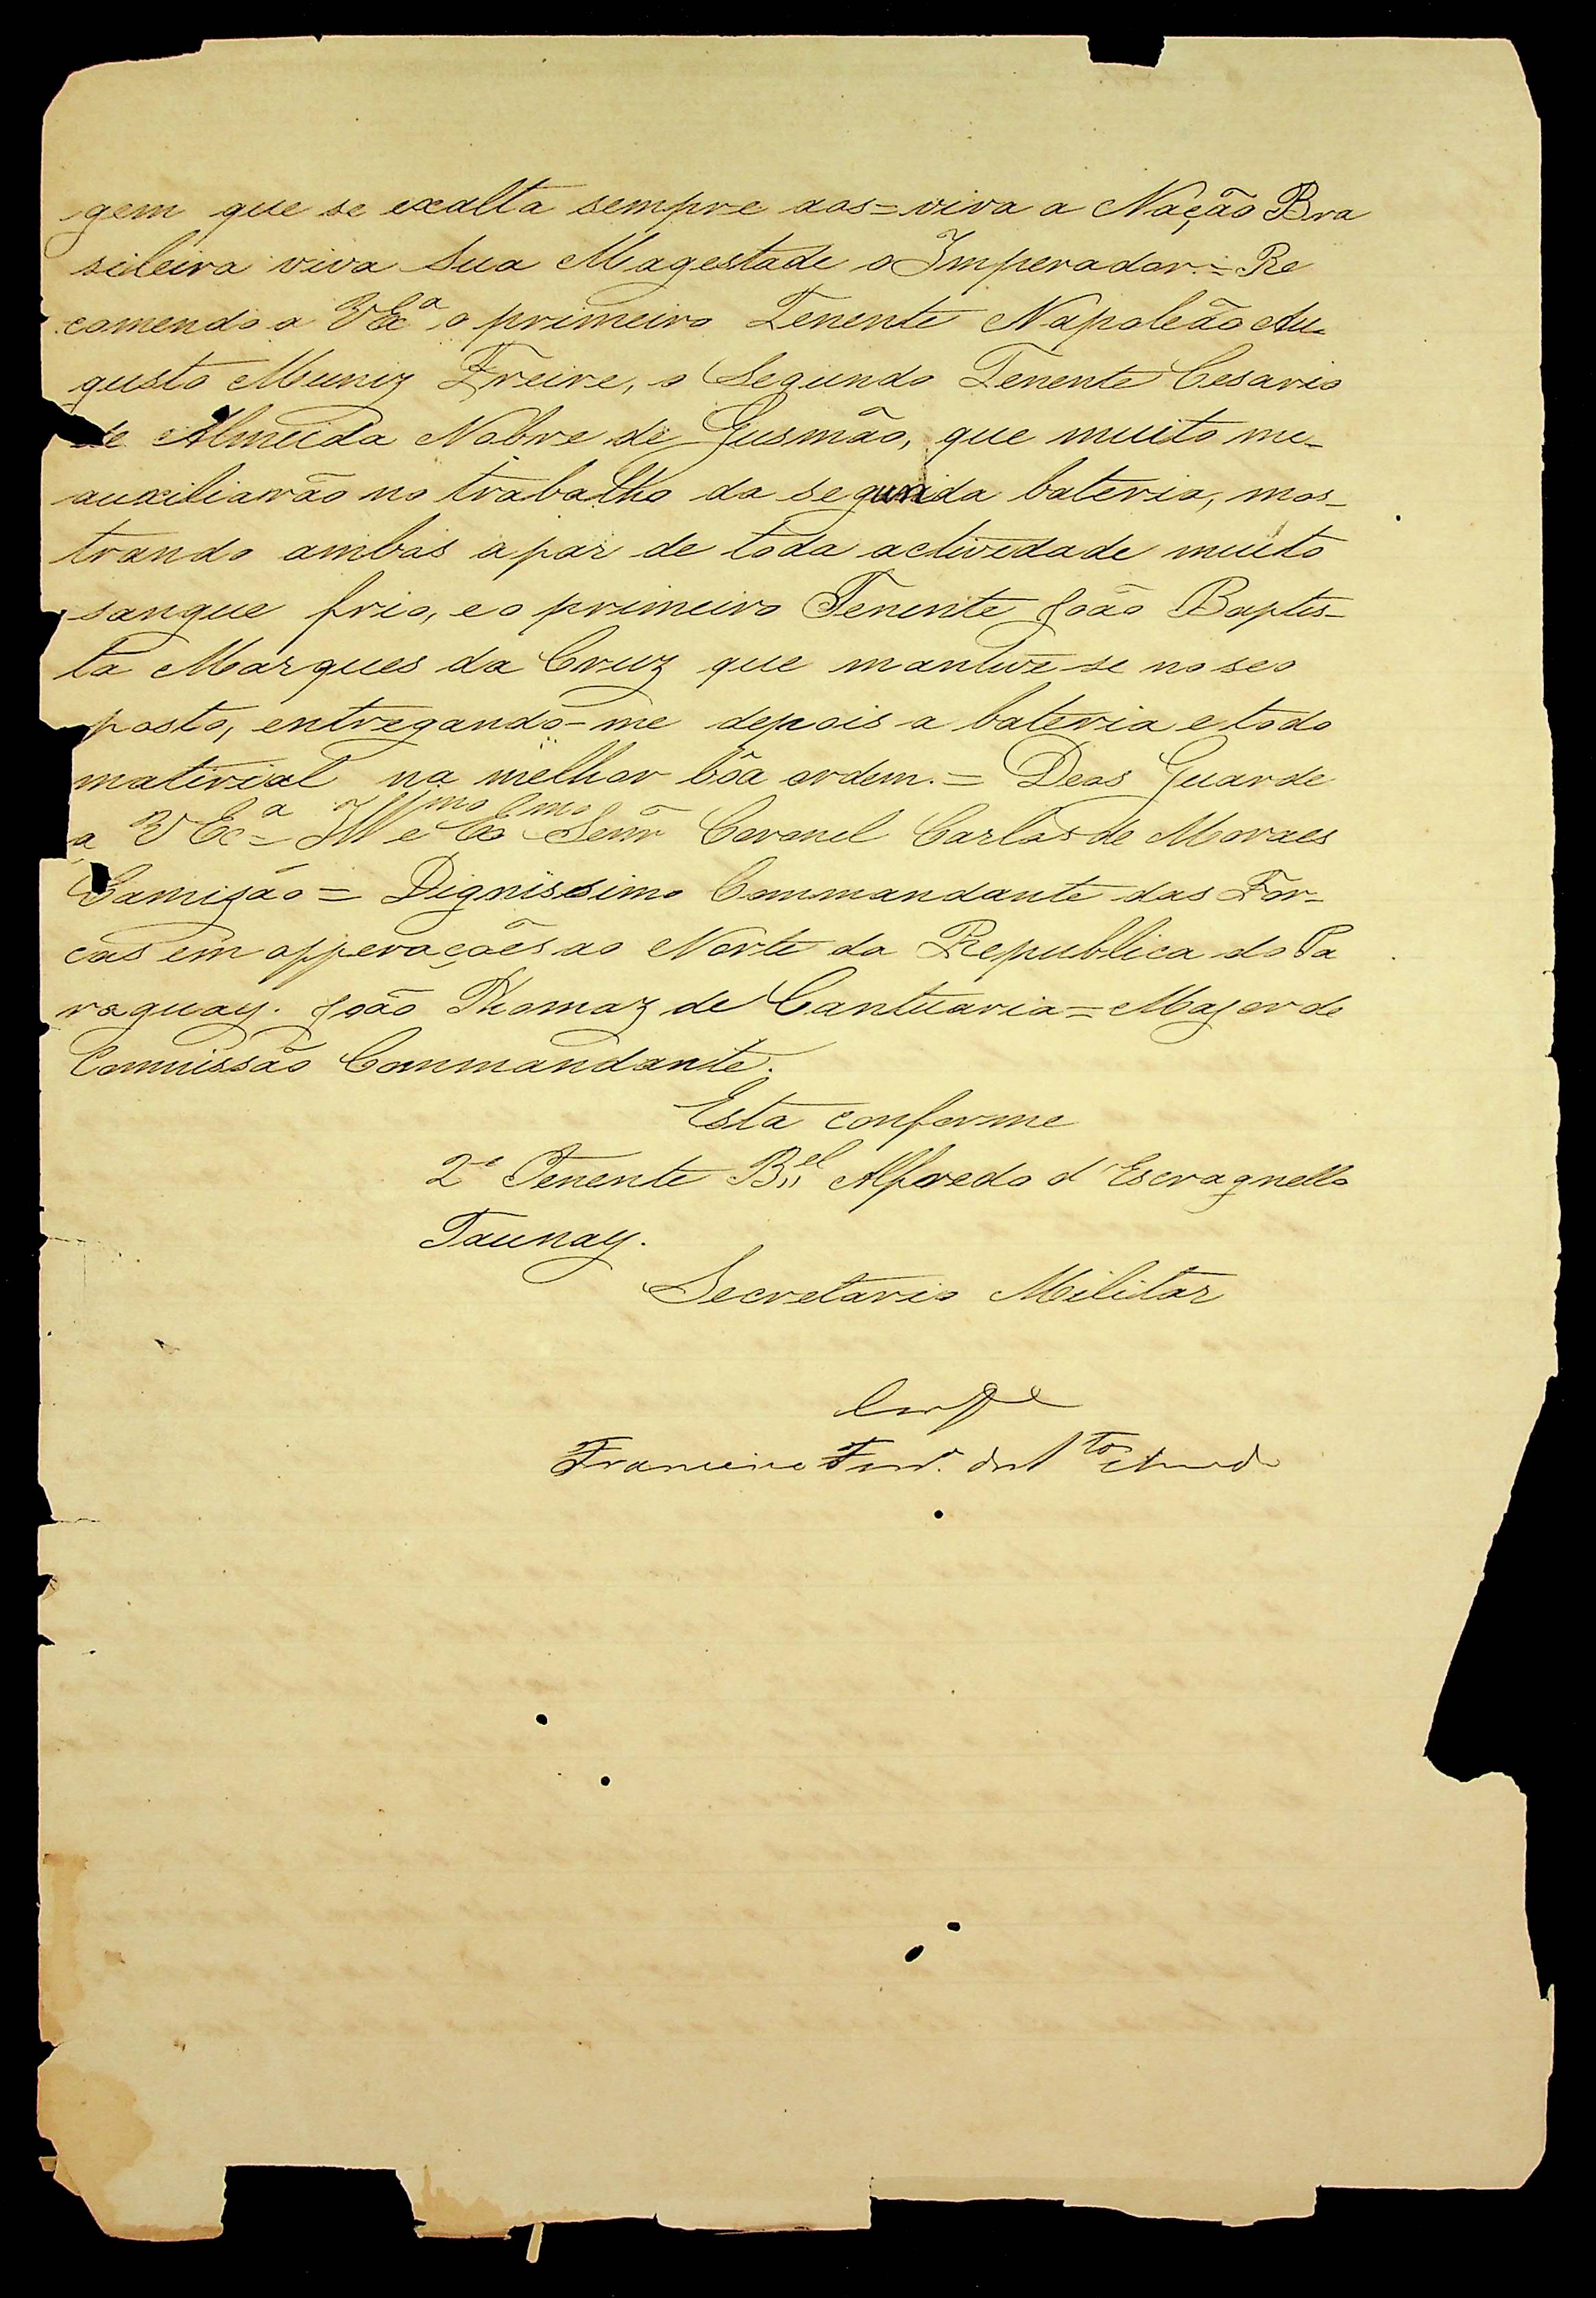 gem que se exalta sempre aos=viva a Nação Bra
sileira viva Sua Magestade o Imperador.=Re
comendo a VExª o primeiro Tenente Napoleão Au-
gusto Muniz Freire, o Segundo Tenente Cesario
de Almeida Nobre de Gusmão, que muito me-
auxiliarão no trabalho da segunda bateria, mos-
trando ambos apar de toda actividade muito
sangue frio, e o primeiro Tenente João Baptis-
ta Marques da Cruz que manteve-se no seo
posto, entregando-me depois a bateria e todo
material na melhor bôa ordem.= Deos Guarde
a VExª= Illmo e Exmo Senr Coronel Carlos de Moraes
Camisão= Dignissimo Commandante das For-
cas em opperações ao Norte da Republica do Pa
raguay. João Thomaz de Cantuaria=Major de
Commissão Commandante.
Esta conforme
2º Tenente Bel Alfredo d'Escragnolle
Taunay.
Secretario Militar
Francisco